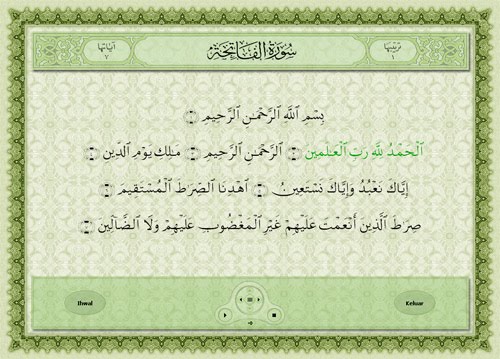 ترتيبها ١
سورة الفاتحة
آياتها ٧
بِسْمِ ٱللَّهِ ٱلرَّحْمَٰنِ ٱلرَّحِيمِ
ٱلْحَمْدُ لِلَّهِ رَبِّ ٱلْعَٰلَمِينَ ٱلرَّحْمَٰنِ ٱلرَّحِيمِ مَٰلِكِ يَوْمِ ٱلدِّينِ
إِيَّاكَ نَعْبُدُ وَإِيَّاكَ نَسْتَعِينُ ٱهْدِنَا ٱلصِّرَٰطَ ٱلْمُسْتَقِيمَ
صِرَٰطَ ٱلَّذِينَ أَنْعَمْتَ عَلَيْهِمْ غَيْرِ ٱلْمَغْضُوبِ عَلَيْهِمْ وَلَا ٱلضَّآلِّينَ
Ihwal
Keluar